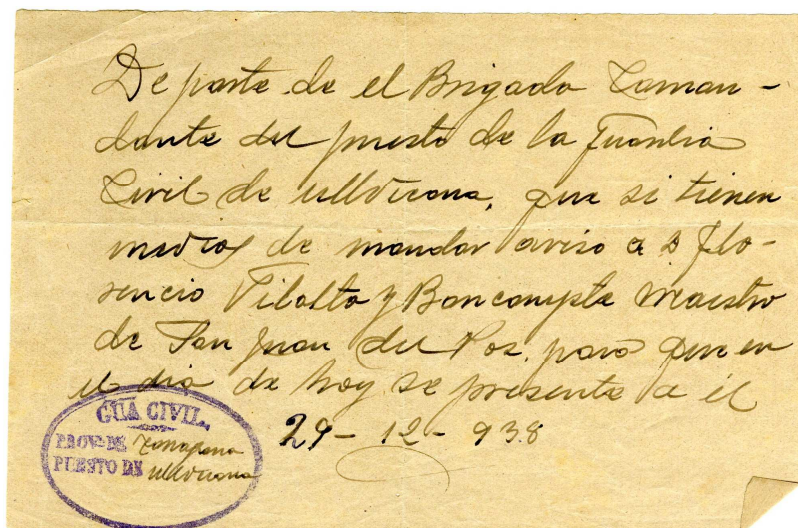 De parte de el Brigada Coman-
dante del puesto de la Guardia
Civil de Ulldecona, que si tienen
medios de mandar aviso a D Flo-
rencio Pilalto y Boncompte maestro
de San Juan del Pas, para que en
el dia de hoy se presente a él
29 - 12 - 938
GUA CIVIL.
PROV. DE Tarragona
PUESTO DE Ulldecona